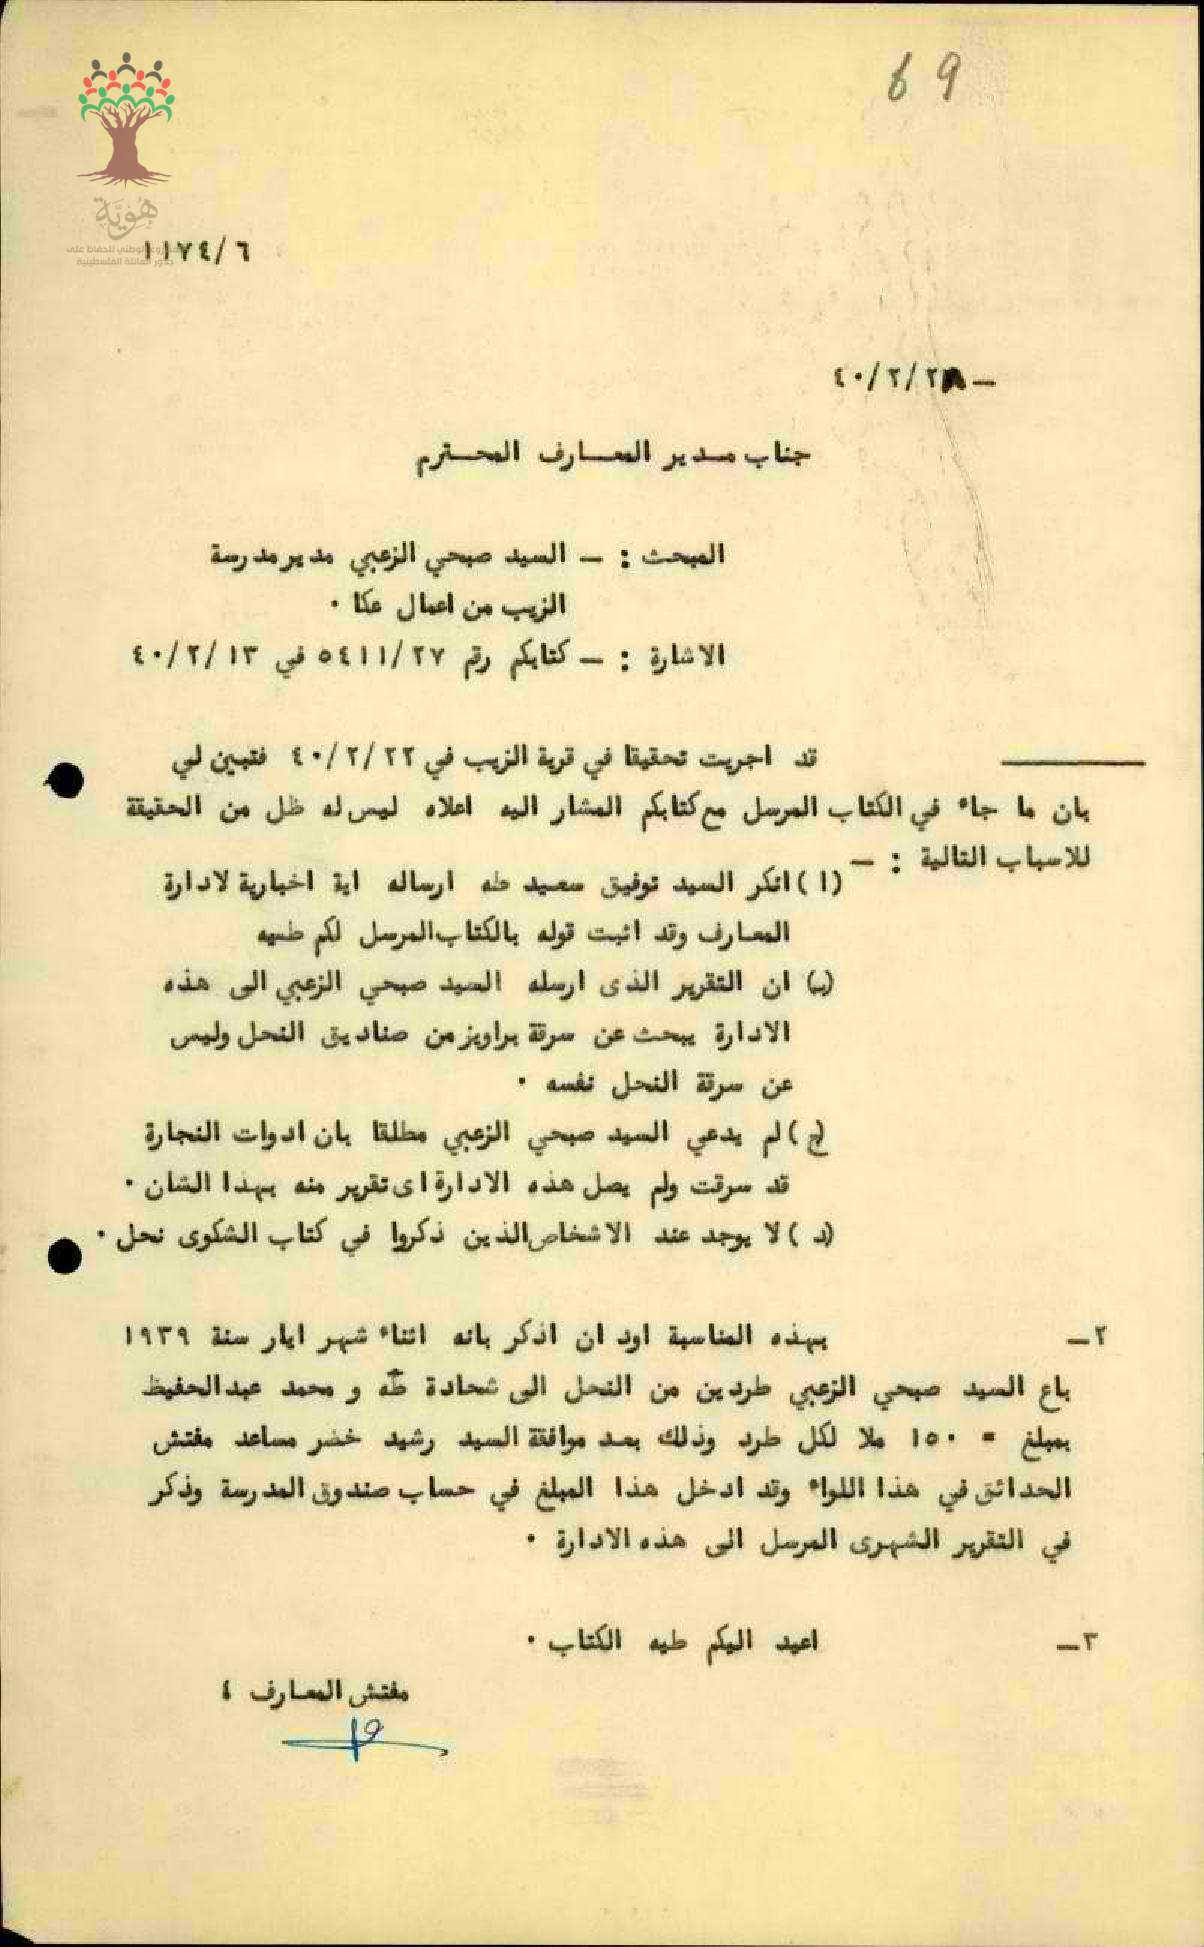 69
هُوِيَّة
المشروع الوطني للحفاظ على
جذور العائلة الفلسطينية
١١٧٤/٦
٤٠/٢/٢٨ —
جناب مدير المعارف المحترم
المبحث : — السيد صبحي الزعبي مدير مدرسة
الزيب من اعمال عكا .
الاشارة : — كتابكم رقم ٥٤١١/٢٧ في ٤٠/٢/١٣
قد اجريت تحقيقا في قرية الزيب في ٤٠/٢/٢٢ فتبين لي
بان ما جاء في الكتاب المرسل مع كتابكم المشار اليه اعلاه ليس له ظل من الحقيقة
للاسباب التالية : —
(ا) انكر السيد توفيق سعيد طه ارساله اية اخبارية لادارة
المعارف وقد اثبت قوله بالكتاب المرسل لكم طيه
(ب) ان التقرير الذى ارسله السيد صبحي الزعبي الى هذه
الادارة يبحث عن سرقة براويز من صناديق النحل وليس
عن سرقة النحل نفسه .
(ج) لم يدعي السيد صبحي الزعبي مطلقا بان ادوات النجارة
قد سرقت ولم يصل هذه الادارة اى تقرير منه بهذا الشان .
(د) لا يوجد عند الاشخاص الذين ذكروا في كتاب الشكوى نحل .
٢— بهذه المناسبة اود ان اذكر بانه اثناء شهر ايار سنة ١٩٣٩
باع السيد صبحي الزعبي طردين من النحل الى شحادة طه و محمد عبد الحفيظ
بمبلغ = ١٥٠ ملا لكل طرد وذلك بعد موافقة السيد رشيد خضر مساعد مفتش
الحدائق في هذا اللواء وقد ادخل هذا المبلغ في حساب صندوق المدرسة وذكر
في التقرير الشهرى المرسل الى هذه الادارة .
٣— اعيد اليكم طيه الكتاب .
مفتش المعارف ٤